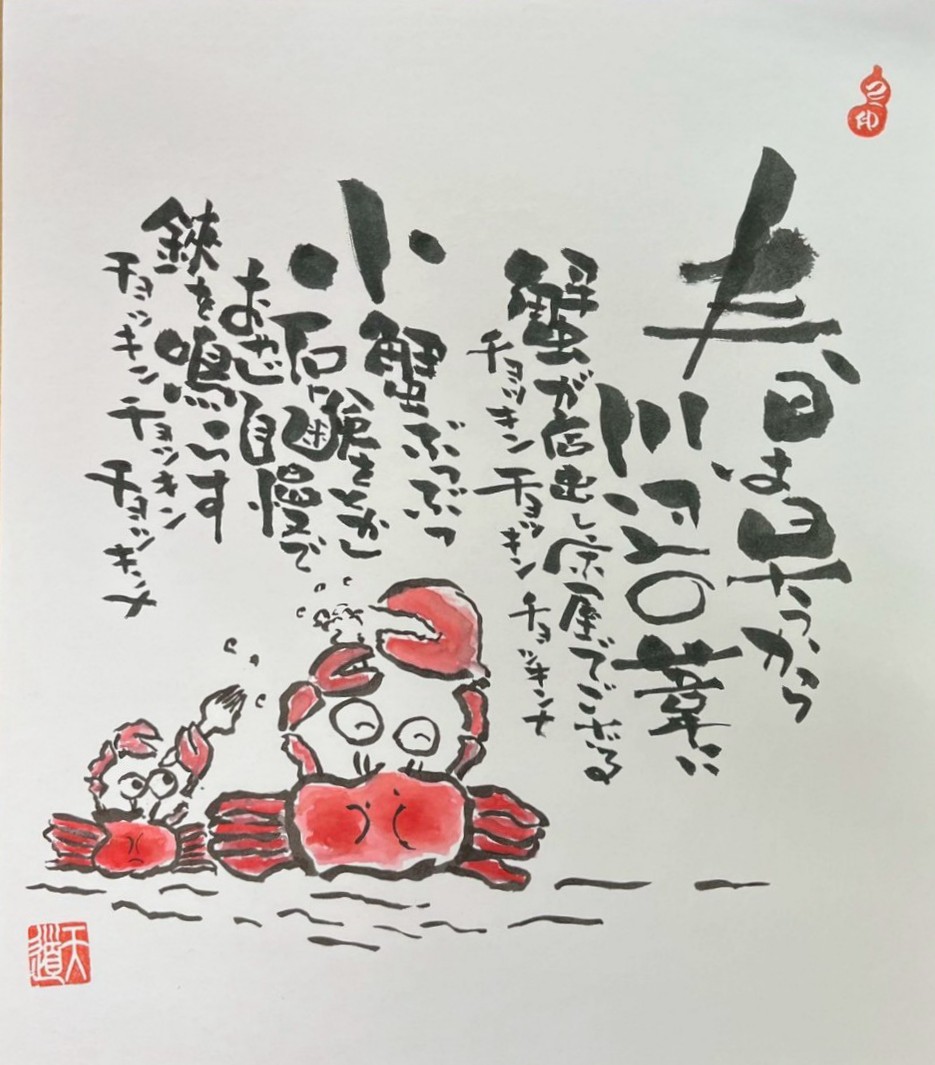 春は早うから
川辺の葦に
蟹が店出し床屋でござる
チョッキンチョッキンチョッキンナ
小蟹ぶつぶつ
石鹼をとかし
おやじ自慢で
鋏を鳴らす
チョッキンチョッキンチョッキンナ
天道